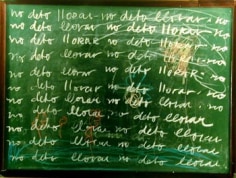 no debo llorar no debo llorar. no
no debo llorar no debo llorar no
no debo lloRAR no debo llorar
no debo llorar no debo lloRAR. no
no debo llorar no debo lloRAR. no
no debo llorar no debo llorar. no
no debo llorar no debo llorar. no
no debo llorar no debo llorar
no debo llorar. no debo llorar
no debo llorar no debo llorar
no debo llorar no debo llorar